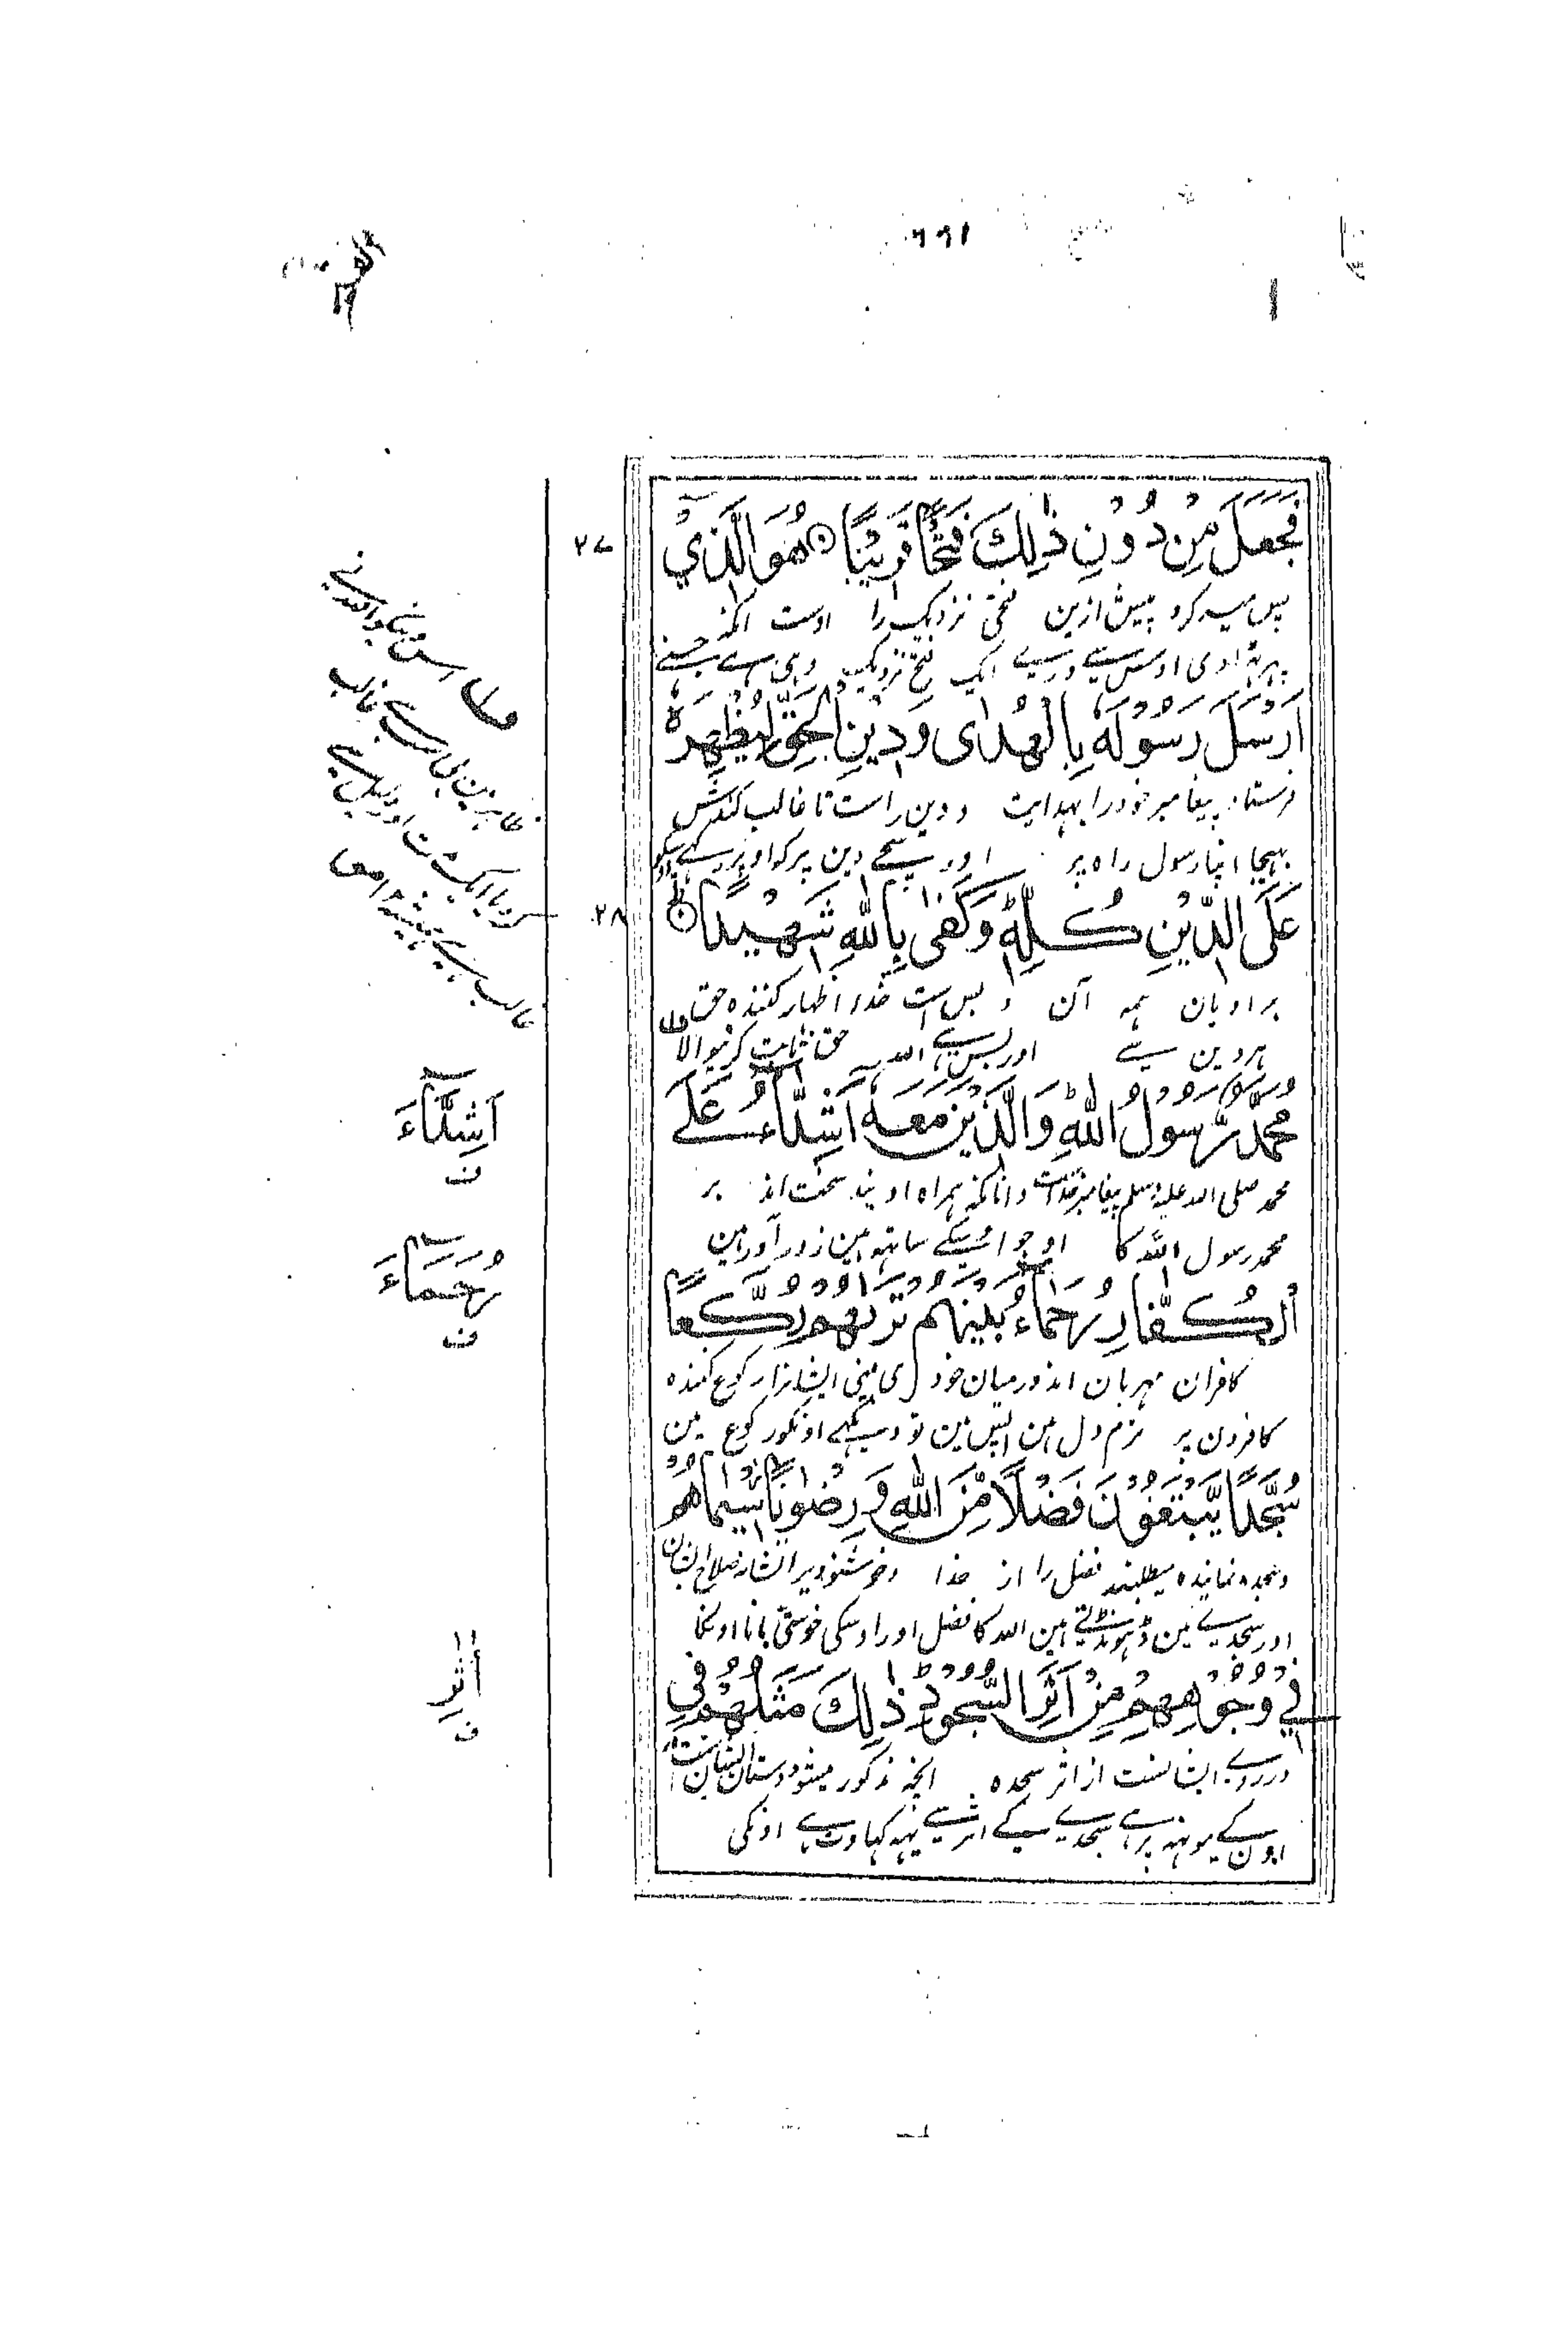 ۶۶۱
فَجَعَلَ مِنْ دُوْنِ ذٰلِكَ فَتْحًا قَرِيْبًا ۞ هُوَ الَّذِيْٓ
۲۷
پس میسر کرد پیش ازین فتحی نزدیک را اوست آنکه
پہر ٹھرا دی اوس سے ورے ایک فتح نزدیک وہی ہے جسنے
اَرْسَلَ رَسُوْلَهٗ بِالْهُدٰى وَدِيْنِ الْحَقِّ لِيُظْهِرَهٗ
فرستاد پیغامبر خود را بہدایت و دین راست تا غالب کندش
بہیجا اپنا رسول راہ پر اور سچے دین پر کہ اوپر رکہے اوسکو
عَلَى الدِّيْنِ كُلِّهٖ ؕ وَكَفٰى بِاللّٰهِ شَهِيْدًا ۞ؕ
۲۸
بر ادیان ہمہ آن و بس است خدا اظہار کنندہ حق
ہر دین سے اور بس ہے اللہ حق ثابت کرنیوالا ف۱
مُحَمَّدٌ رَّسُوْلُ اللّٰهِ ؕ وَالَّذِيْنَ مَعَهٗٓ اَشِدَّآءُ عَلَے
محمد صلی اللہ علیہ وسلم پیغامبر خداست و انانکہ ہمراہ اویند سخت اند بر
محمد رسول اللہ کا اور جو اسکے ساتہ ہین زور آور ہین
الْكُفَّارِ رُحَمَآءُ بَيْنَهُمْ تَرٰىهُمْ رُكَّعًا
کافران مہربان اند درمیان خود می بینی ایشانرا رکوع کنندہ
کافرون پر نرم دل ہین آپس مین تو دیکہے اونکو رکوع مین
سُجَّدًا يَّبْتَغُوْنَ فَضْلًا مِّنَ اللّٰهِ وَرِضْوَانًا سِيْمَاهُمْ
و سجدہ نمایندہ میطلبند فضل را از خدا و خوشنودی را نشانہ صلاح ایشان
اور سجدے مین ڈہونڈتے ہین اللہ کا فضل اور اوسکی خوشی بانا اونکا
فِيْ وُجُوْهِهِمْ مِّنْ اَثَرِ السُّجُوْدِ ؕ ذٰلِكَ مَثَلُهُمْ فِي
در روے ایشانست از اثر سجدہ انچہ مذکور میشود داستان ایشانست
اون کے مونہہ پر ہے سجدے کے اثر سے یہہ کہاوت ہے اونکی
اَشِدَّآءَ
ن
رُحَمَآءَ
ن
اِثْرِ
ن